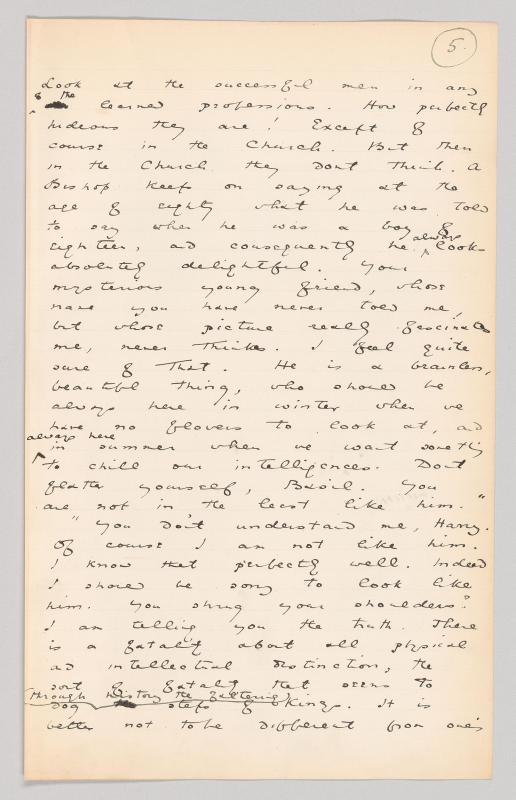 5.
Look at the successful men in any
of the learned professions. How perfectly
hideous they are! Except of
course in the Church. But then
in the Church they dont think. A
Bishop keeps on saying at the
age of eighty what he was told
to say when he was a boy of
eighteen, and consequently he always looks
absolutely delightful. Your
mysterious young friend, whose
name you have never told me,
but whose picture really fascinates
me, never thinks. I feel quite
sure of that. He is a brainless,
beautiful thing, who should be
always here in winter when we
have no flowers to look at, and
always here in summer when we want something
to chill our intelligences. Dont
flatter yourself, Basil. You
are not in the least like him."
"You don't understand me, Harry.
Of course I am not like him.
I know that perfectly well. Indeed
I should be sorry to look like
him. You shrug your shoulders?
I am telling you the truth. There
is a fatality about all physical
and intellectual distinction, the
sort of fatality that seems to
dog through history the faltering steps of kings. It is
better not to be different from one's